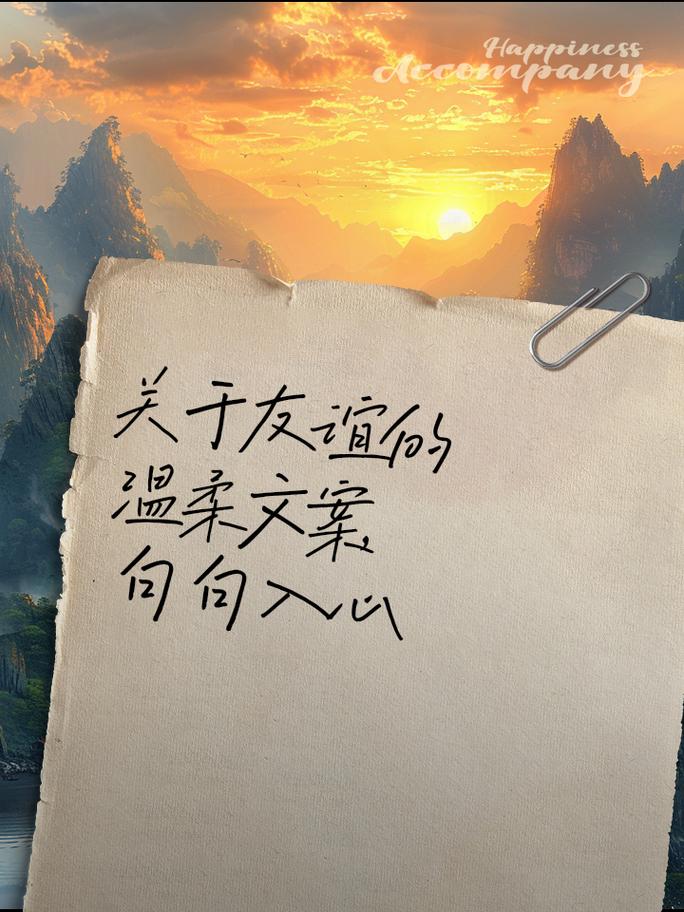 Happiness
Accompany
关于友谊的
温柔文案,
句句入心